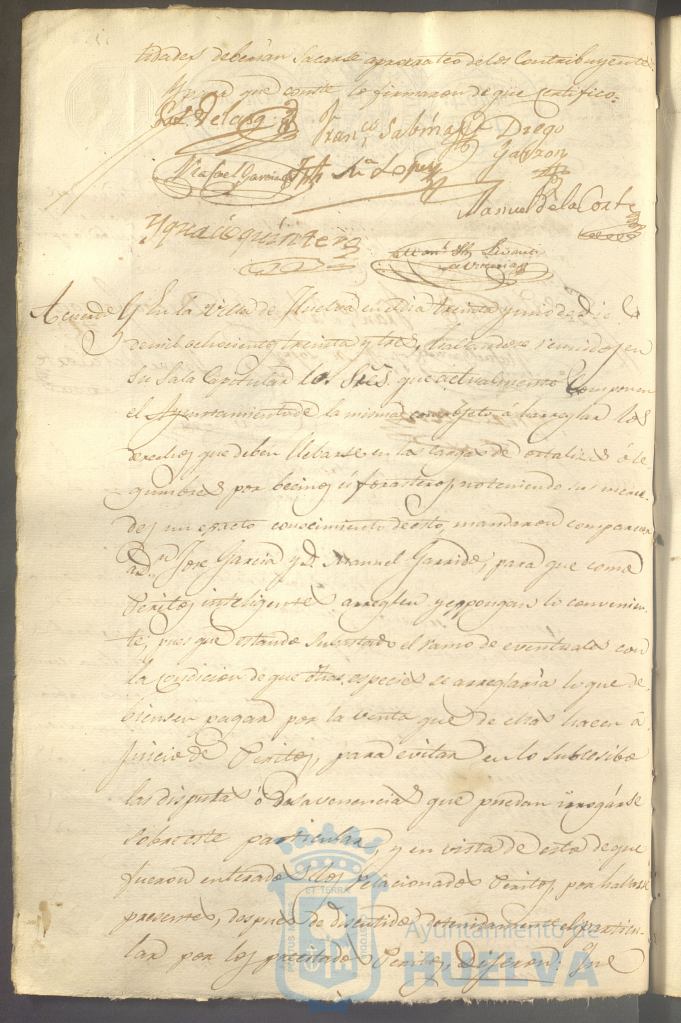 tidades deberian sacarse aprorrateo de los Contribuyentes.
Y para que conste lo firmaron de que Certifico=
Franco. Sabina Diego
Garzon
Rafael Garcia Na. Lopez
Manuel de la Corte
Ygnacio quintero
Acuerdo En la Villa de Huelva en dia treinta y uno de Dice.
de mil ochociento, treinta y tres, hallandose reunidos en
su Sala Capitular los Sres. que actualmente componen
el Ayuntamiento de la misma con objeto á arreglar los
derechos que deben llebarse en las cargas de ortalizas ó le
gumbres por becinos ó forasteros, no teniendo sus merce
des un esacto conocimiento de esto, mandaron comparecer
a Dn. Jose Garcia y D. Manuel Garrido, para que como
Peritos inteligentes arreglen y espongan lo convenien
te, pues que estando subastado el ramo de eventuales con
la Condicion de que otras especies se arreglaria lo que de
biesen pagar por la venta que de ellas hacen á
Juicio de Peritos, para evitar en lo subcesibo
las disputas ó desavenencias que puedan irrogarse
sobre este particular y en vista de esto de que
fueron enterados los relacionados Peritos por hallarse
presentes, despues de discutido detenidamente el particu-
lar por los precitados Peritos, Dijeron: Que
PORTUS MARIS ET TERRAE CUSTODIA
Ayuntamiento de
HUELVA